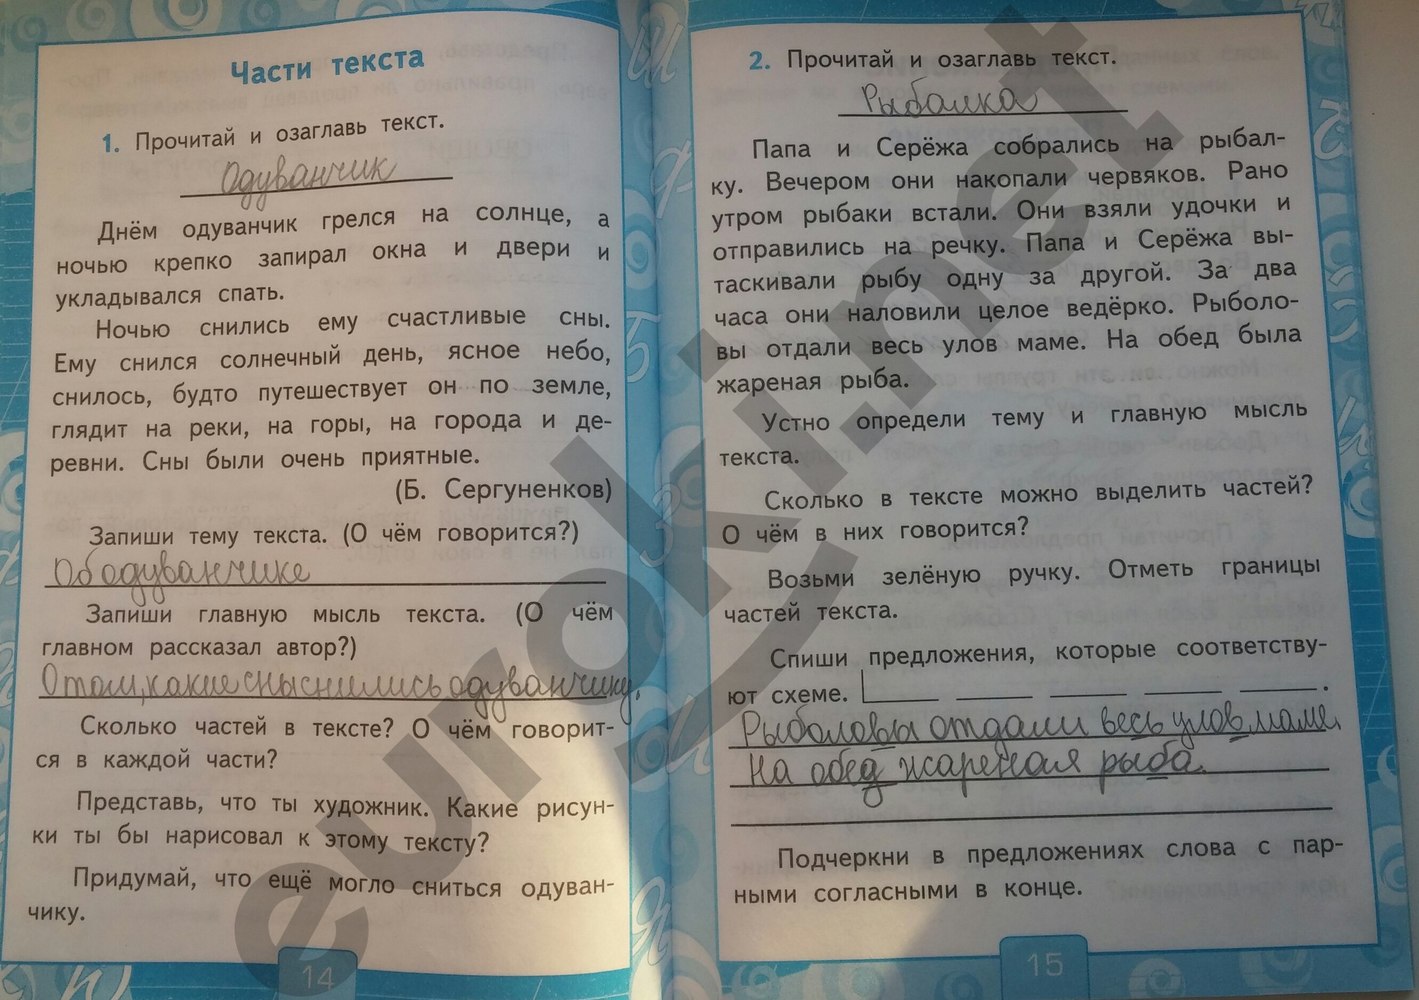 Части текста
1. Прочитай и озаглавь текст.
Одуванчик
Днём одуванчик грелся на солнце, а
ночью крепко запирал окна и двери и
укладывался спать.
Ночью снились ему счастливые сны.
Ему снился солнечный день, ясное небо,
снилось, будто путешествует он по земле,
глядит на реки, на горы, на города и де-
ревни. Сны были очень приятные.
(Б. Сергуненков)
Запиши тему текста. (О чём говорится?)
Об одуванчике
Запиши главную мысль текста. (О чём
главном рассказал автор?)
О том, какие сны снились одуванчику.
Сколько частей в тексте? О чём говорит-
ся в каждой части?
Представь, что ты художник. Какие рисун-
ки ты бы нарисовал к этому тексту?
Придумай, что ещё могло сниться одуван-
чику.
14
2. Прочитай и озаглавь текст.
Рыбалка
Папа и Серёжа собрались на рыбал-
ку. Вечером они накопали червяков. Рано
утром рыбаки встали. Они взяли удочки и
отправились на речку. Папа и Серёжа вы-
таскивали рыбу одну за другой. За два
часа они наловили целое ведёрко. Рыболо-
вы отдали весь улов маме. На обед была
жареная рыба.
Устно определи тему и главную мысль
текста.
Сколько в тексте можно выделить частей?
О чём в них говорится?
Возьми зелёную ручку. Отметь границы
частей текста.
Спиши предложения, которые соответству-
ют схеме.
Рыболовы отдали весь улов маме.
На обед жареная рыба.
Подчеркни в предложениях слова с пар-
ными согласными в конце.
15
euroki.net